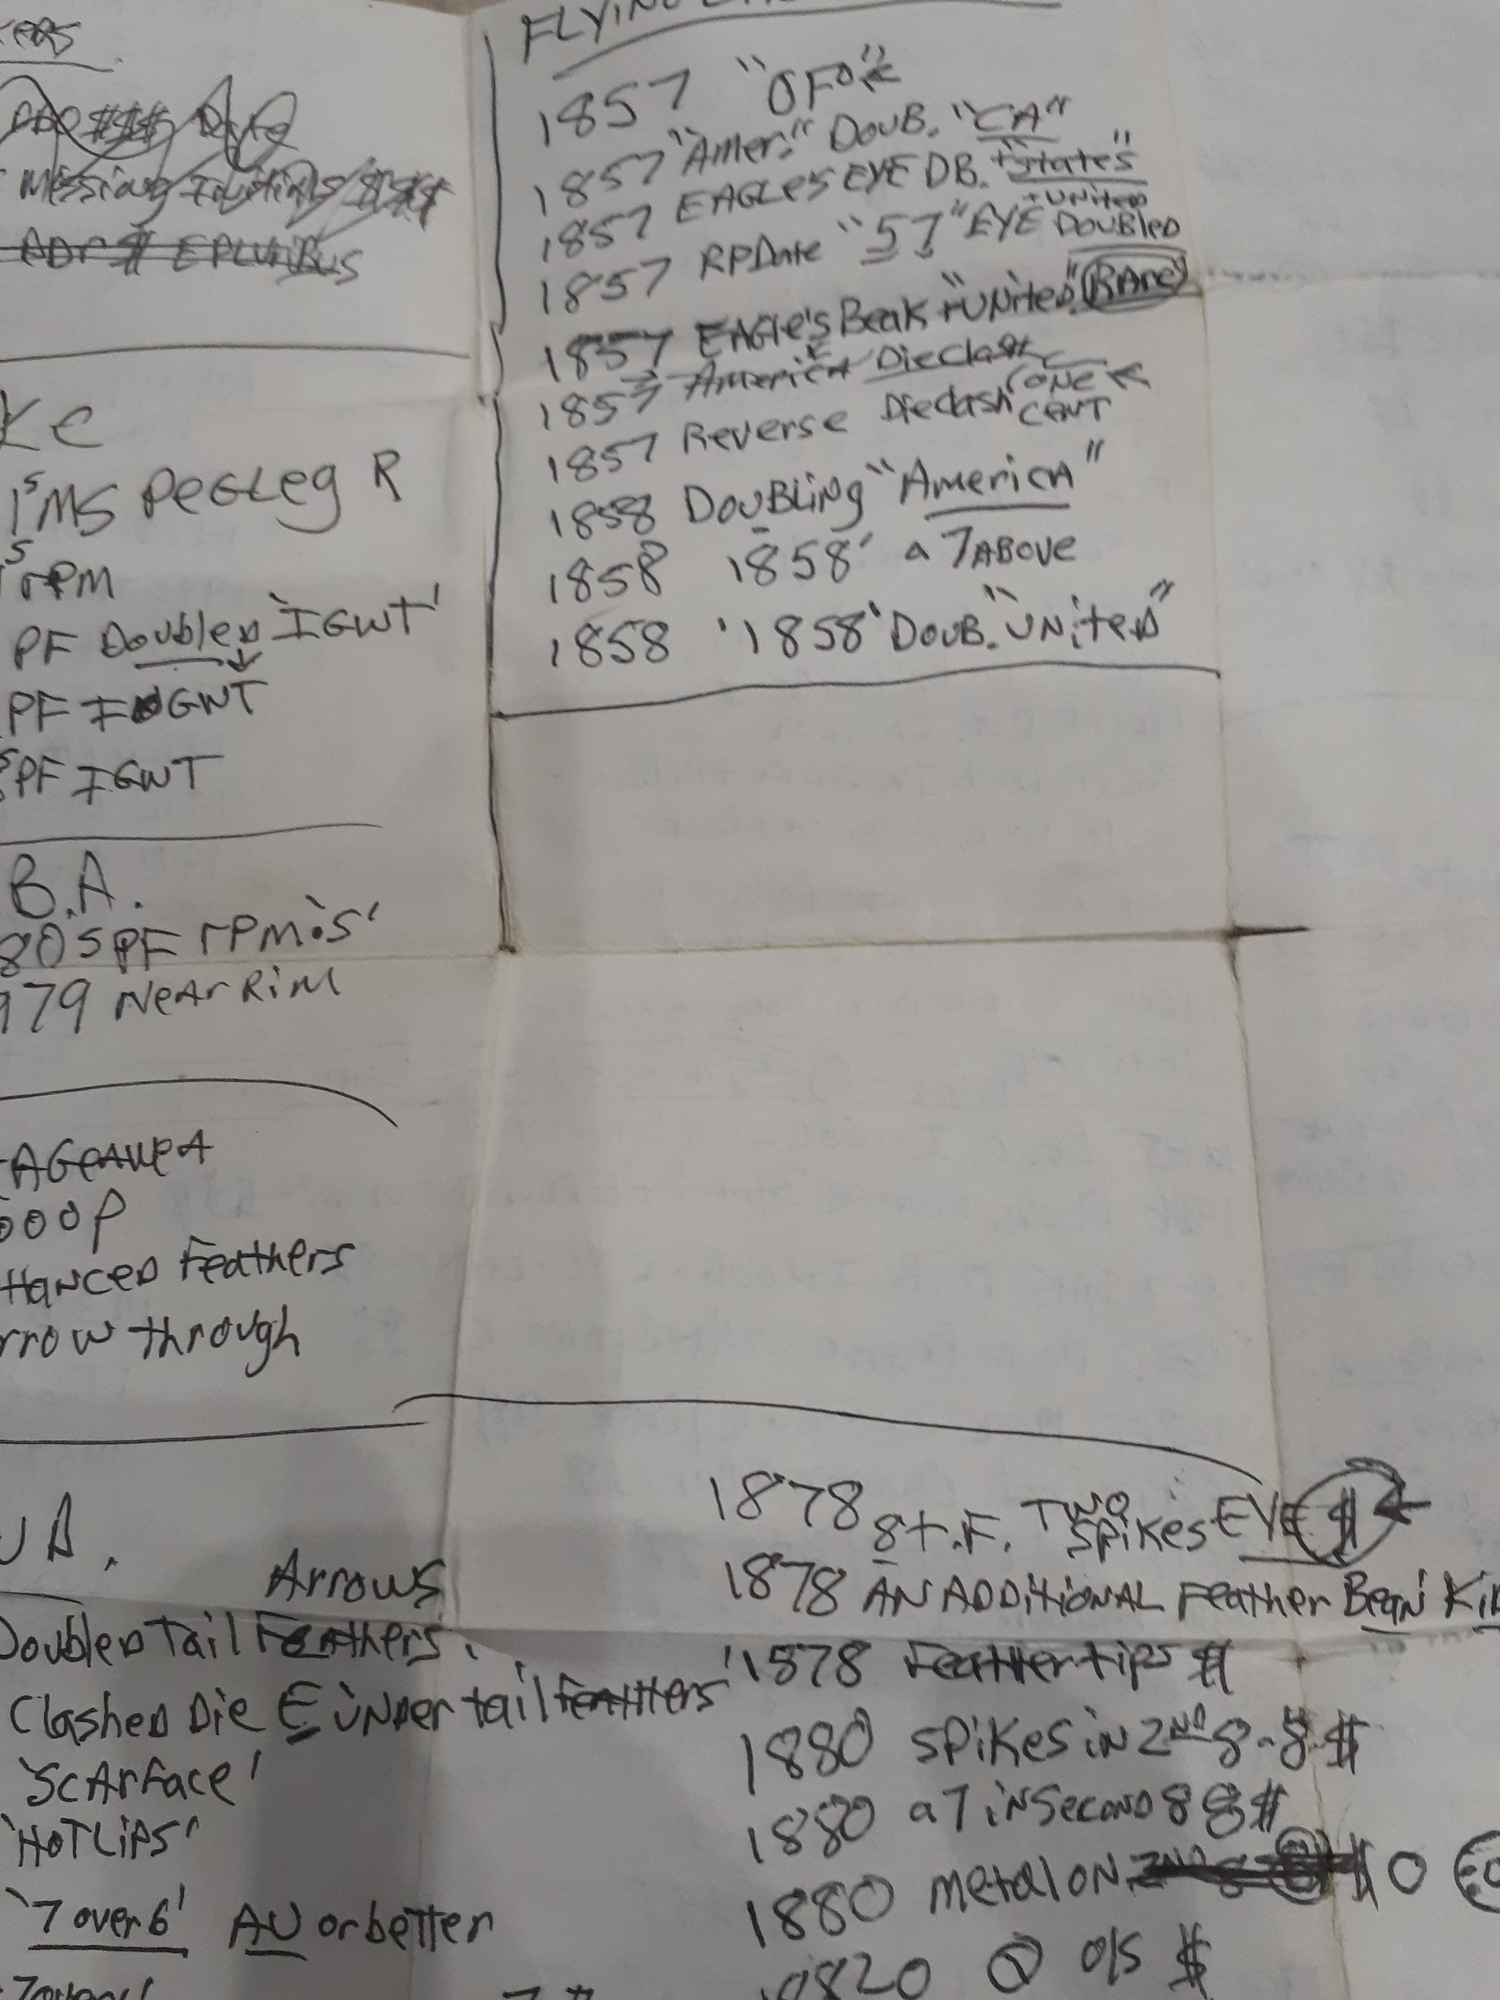 FLYING
1857 "OF"
1857 "Amer." DOUB. "CA"
1857 EAGLES EYE DB. + "States"
+UNITED
1857 RPDate "57" EYE DOUBLED
1857 EAGle's Beak + "UNiteD" RAre
1857 AmericA Dieclash
1857 Reverse Dieclash ONE CENT
1858 DOUBLiNg "AmericA"
1858 1858' a 7 ABOVE
1858 '1858' DOUB. "UNiteD"
Missing
EPLURIBUS
Ke
1's MS PeGLeg R
rPM
PF DoubleD 'IGWT'
PF IGWT
PF IGWT
B.A.
80 S PF rPM's'
979 NeAr RiM
oop
HANCeD FeAthers
rrow through
Arrows
DoubleD Tail FeAthers
ClasheD Die E UNDer tail feathers
'ScArface'
'HOTLiPS'
'7 over 6' AU or better
1878 8 t.F. TWO SPikes EYE $
1878 AN ADDitiONAL FeAther BeaN
1878 FeAther tips $
1880 SPiKes iN 2ND 8 - 8 $
1880 a 7 iN SecOND 8 8 $
1880 metal ON $ 0
O/S $